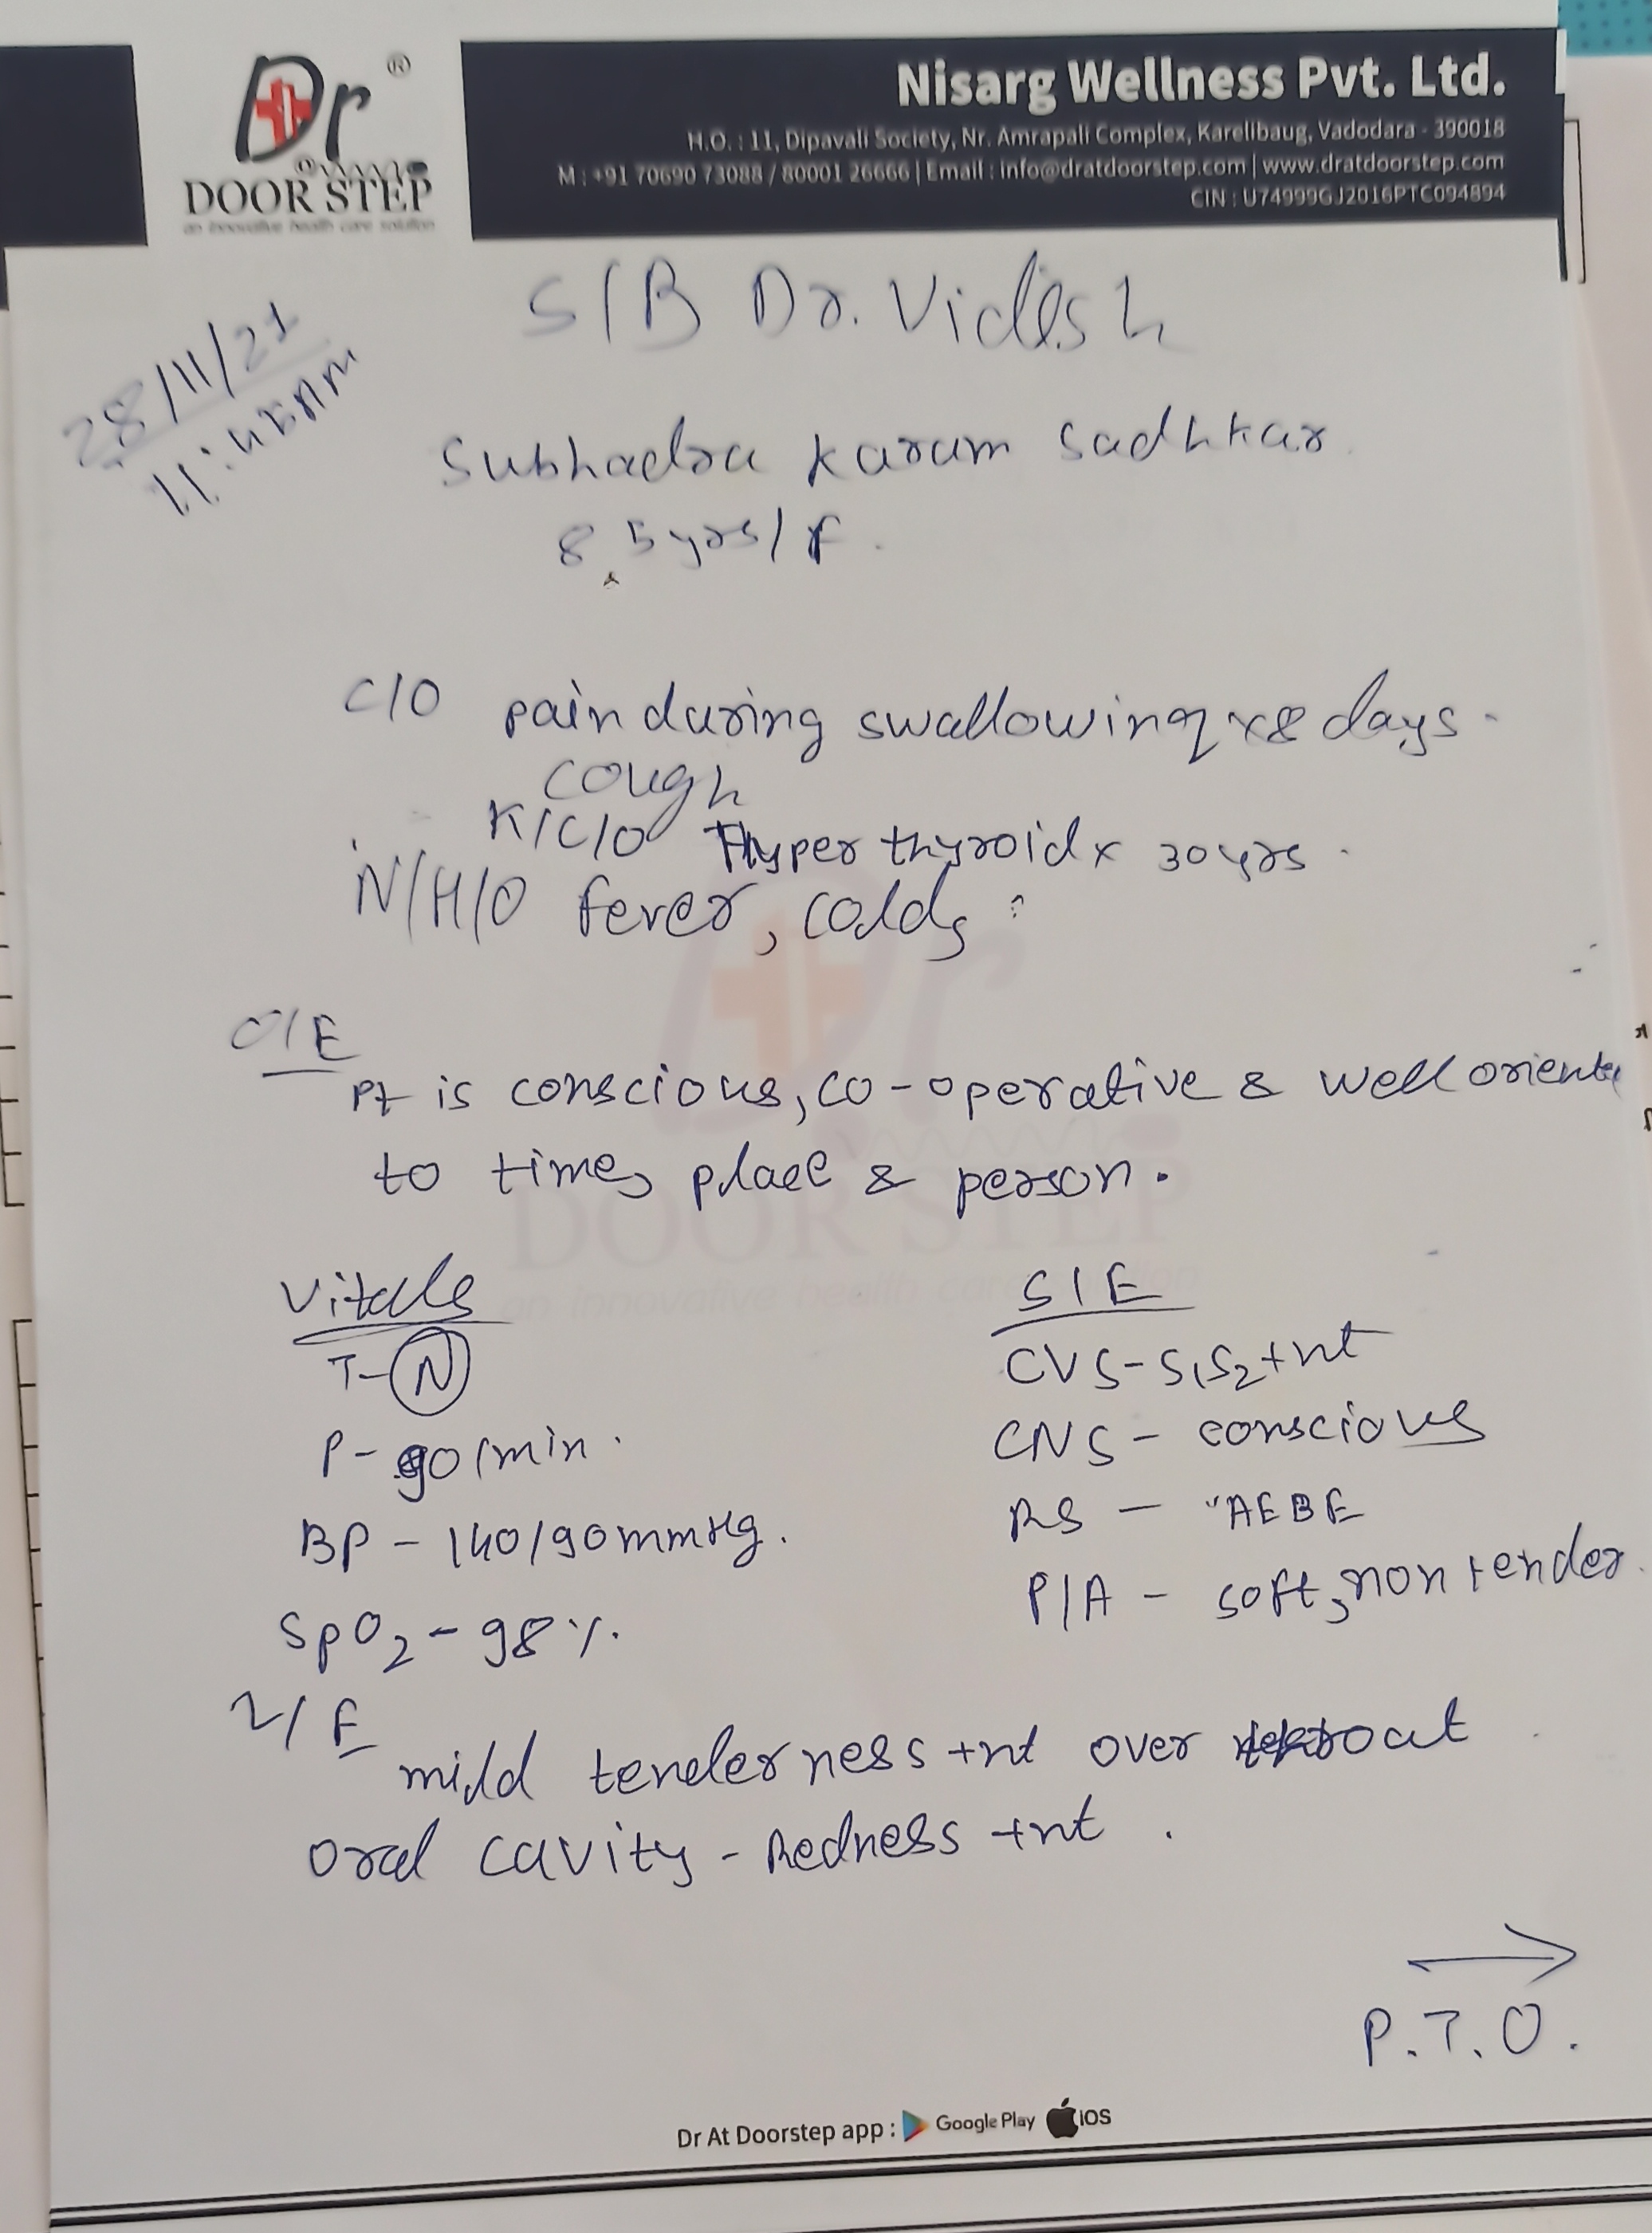 Dr ®
DOOR STEP
an innovative health care solution
Nisarg Wellness Pvt. Ltd.
H.O. : 11, Dipavali Society, Nr. Amrapali Complex, Karelibaug, Vadodara - 390018
M : +91 70690 73088 / 80001 26666 | Email : info@dratdoorstep.com | www.dratdoorstep.com
CIN : U74999GJ2016PTC094894
S/B Dr. Videsh
28/11/21
11:45AM
Subhadra Karam Sadhkar.
85yrs/F.
C/O pain during swallowing x 8 days.
cough
K/C/O Hyper thyroid x 30yrs.
N/H/O fever, colds
O/E
Pt is conscious, co-operative & well oriente
to time, place & person.
Vitals
T-(N)
P-90/min.
BP - 140/90mmHg.
SpO2 - 98%.
S/E
CVS-S1S2+nt
CNS - conscious
RS - AEBE
P/A - soft, non tender.
L/E
mild tenderness +nt over throat
oral cavity - Redness +nt.
P.T.O.
Dr At Doorstep app : Google Play iOS